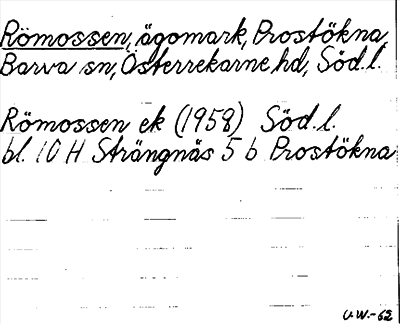 Römossen, ägomark, Prostökna,
Barva sn, Österrekarne hd, Söd. l.
Römossen ek (1958) Söd. l.
bl. 10 H Strängnäs 5 b Prostökna
U.W.-62